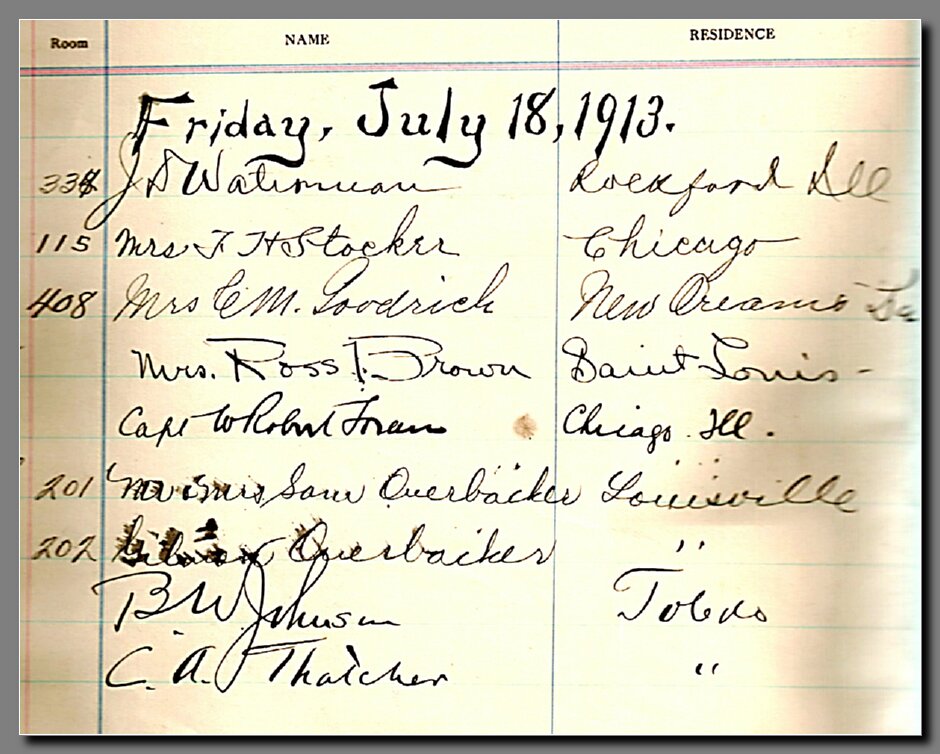 Room NAME RESIDENCE
Friday, July 18, 1913.
334 J D Waterman Rockford Ill
115 Mrs F H Stocker Chicago
408 Mrs C M. Goodrich New Orleans La
Mrs. Ross Brown Saint Louis -
Capt W Robert Foran Chicago Ill.
201 Mr & Mrs Sam Overbacker Louisville
202 Overbacker "
B W Johnson Toledo
C. A. Thatcher "